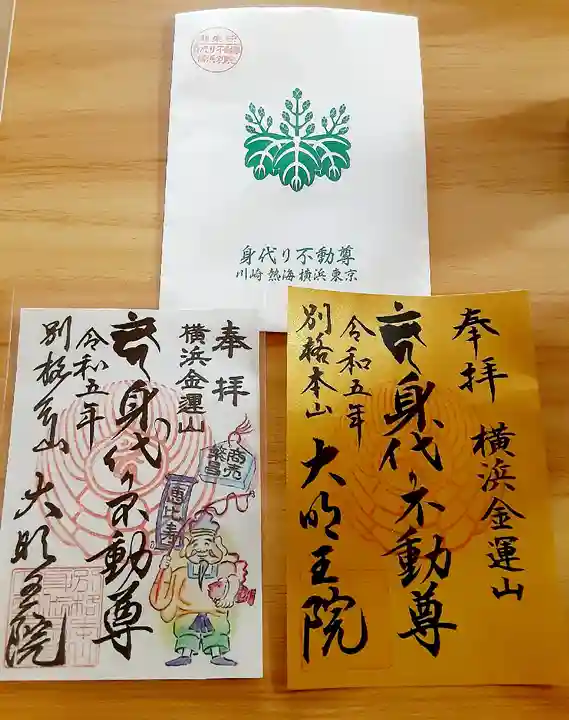 身代り不動尊
川崎 熱海 横浜 東京
奉拝
横浜金運山
身代り不動尊
令和五年
別格本山 大明王院
商売
繁昌
恵比寿
奉拝
横浜金運山
身代り不動尊
令和五年
別格本山 大明王院